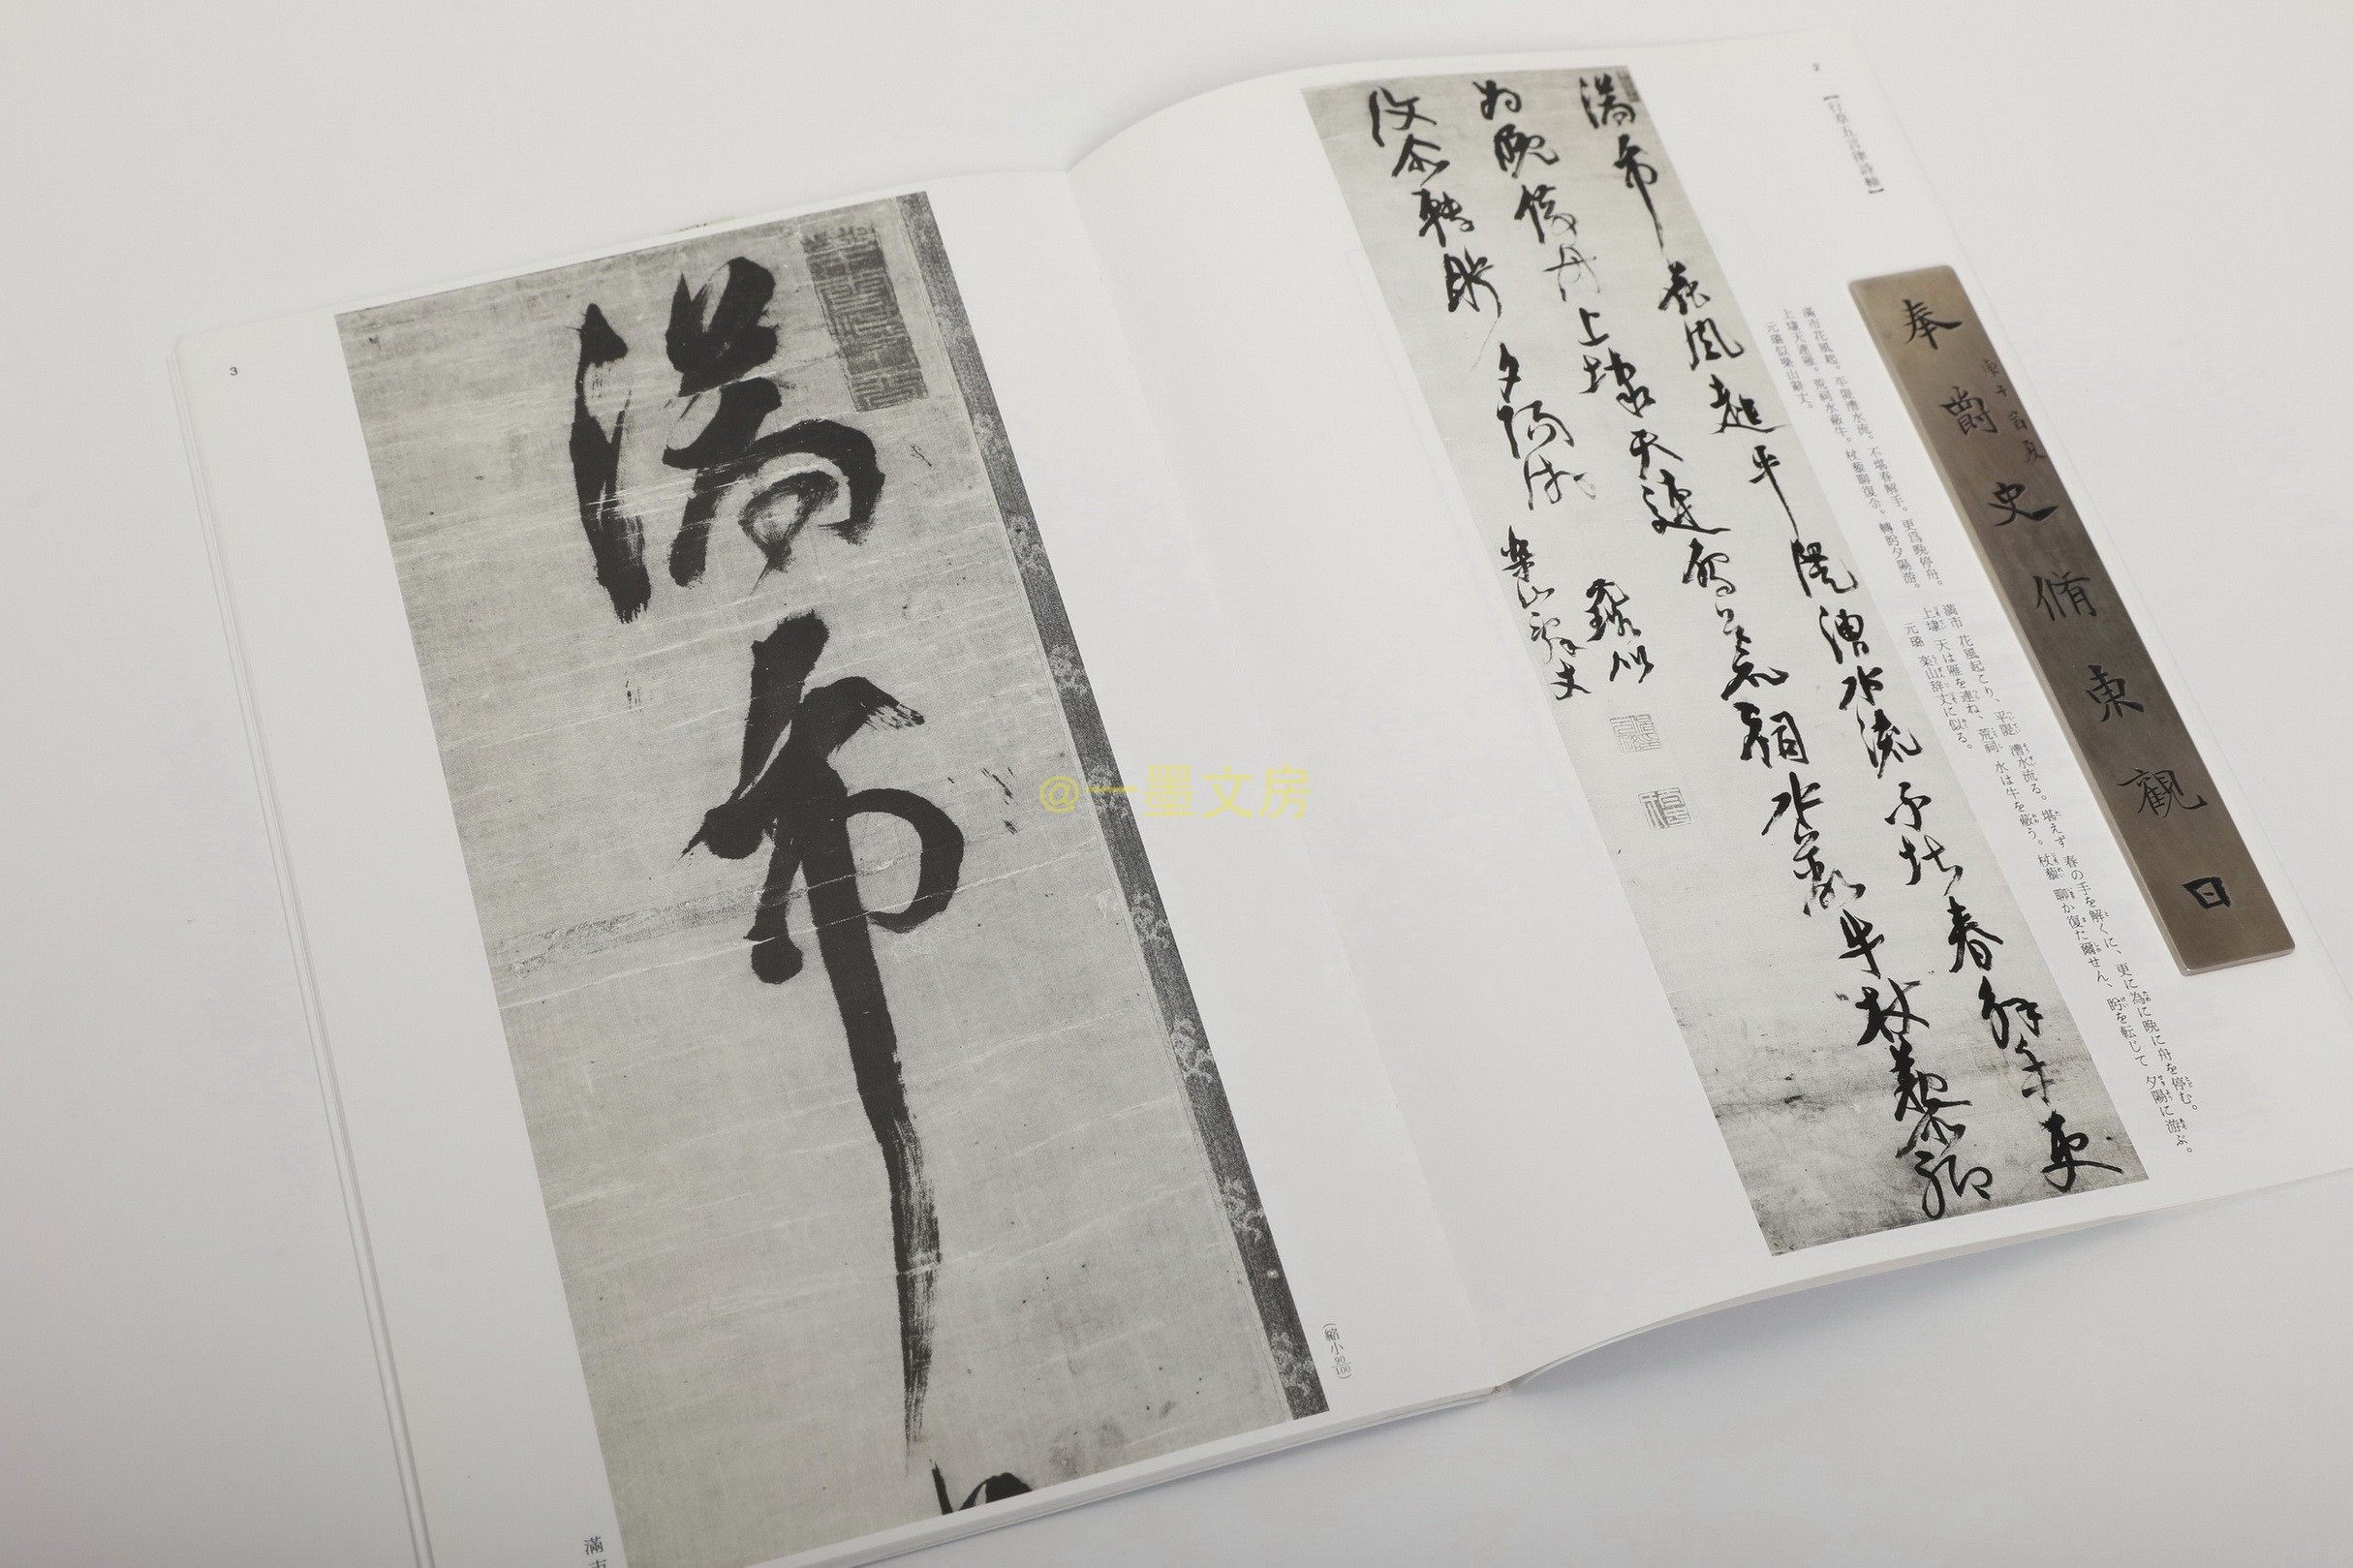 2
【行草五言律詩軸】
滿市花風起。平隄漕水流。不堪春解手。更爲晩停舟。
上埭天連雁。荒祠水蔽牛。杖藜聊復尒。轉盻夕陽游。
元璐似樂山辭丈。
滿市 花風起こり、平隄 漕水流る。堪えず 春の手を解くに、更に為に晩に舟を停む。
上埭 天は雁を連ね、荒祠 水は牛を蔽う。杖藜 聊か復た爾せん、盻を転じて 夕陽に游ぶ。
元璐 楽山辞丈に似る。
奉爵史脩東観日
庚子首夏
滿市花風起平隄漕水流不堪春解手更
為晩停舟上埭天連雁荒祠水蔽牛杖藜聊
復尒轉盻夕陽游
元璐似
樂山辭丈
3
滿市
(縮小90/100)
滿市
@一墨文房